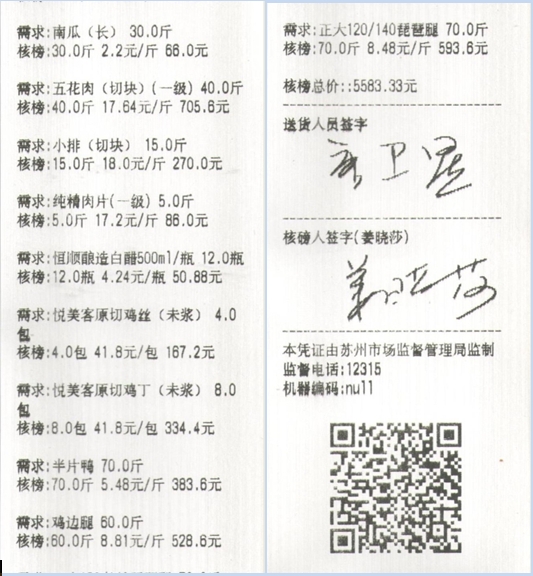 需求:南瓜（长） 30.0斤
核榜:30.0斤 2.2元/斤 66.0元
需求:五花肉（切块）(一级) 40.0斤
核榜:40.0斤 17.64元/斤 705.6元
需求:小排（切块） 15.0斤
核榜:15.0斤 18.0元/斤 270.0元
需求:纯精肉片(一级) 5.0斤
核榜:5.0斤 17.2元/斤 86.0元
需求:恒顺酿造白醋500ml/瓶 12.0瓶
核榜:12.0瓶 4.24元/瓶 50.88元
需求:悦美客原切鸡丝（未浆） 4.0
包
核榜:4.0包 41.8元/包 167.2元
需求:悦美客原切鸡丁（未浆） 8.0
包
核榜:8.0包 41.8元/包 334.4元
需求:半片鸭 70.0斤
核榜:70.0斤 5.48元/斤 383.6元
需求:鸡边腿 60.0斤
核榜:60.0斤 8.81元/斤 528.6元
需求:正大120/140琵琶腿 70.0斤
核榜:70.0斤 8.48元/斤 593.6元
核榜总价::5583.33元
送货人员签字
核磅人签字(姜晓莎)
姜晓莎
本凭证由苏州市场监督管理局监制
监督电话:12315
机器编码:null